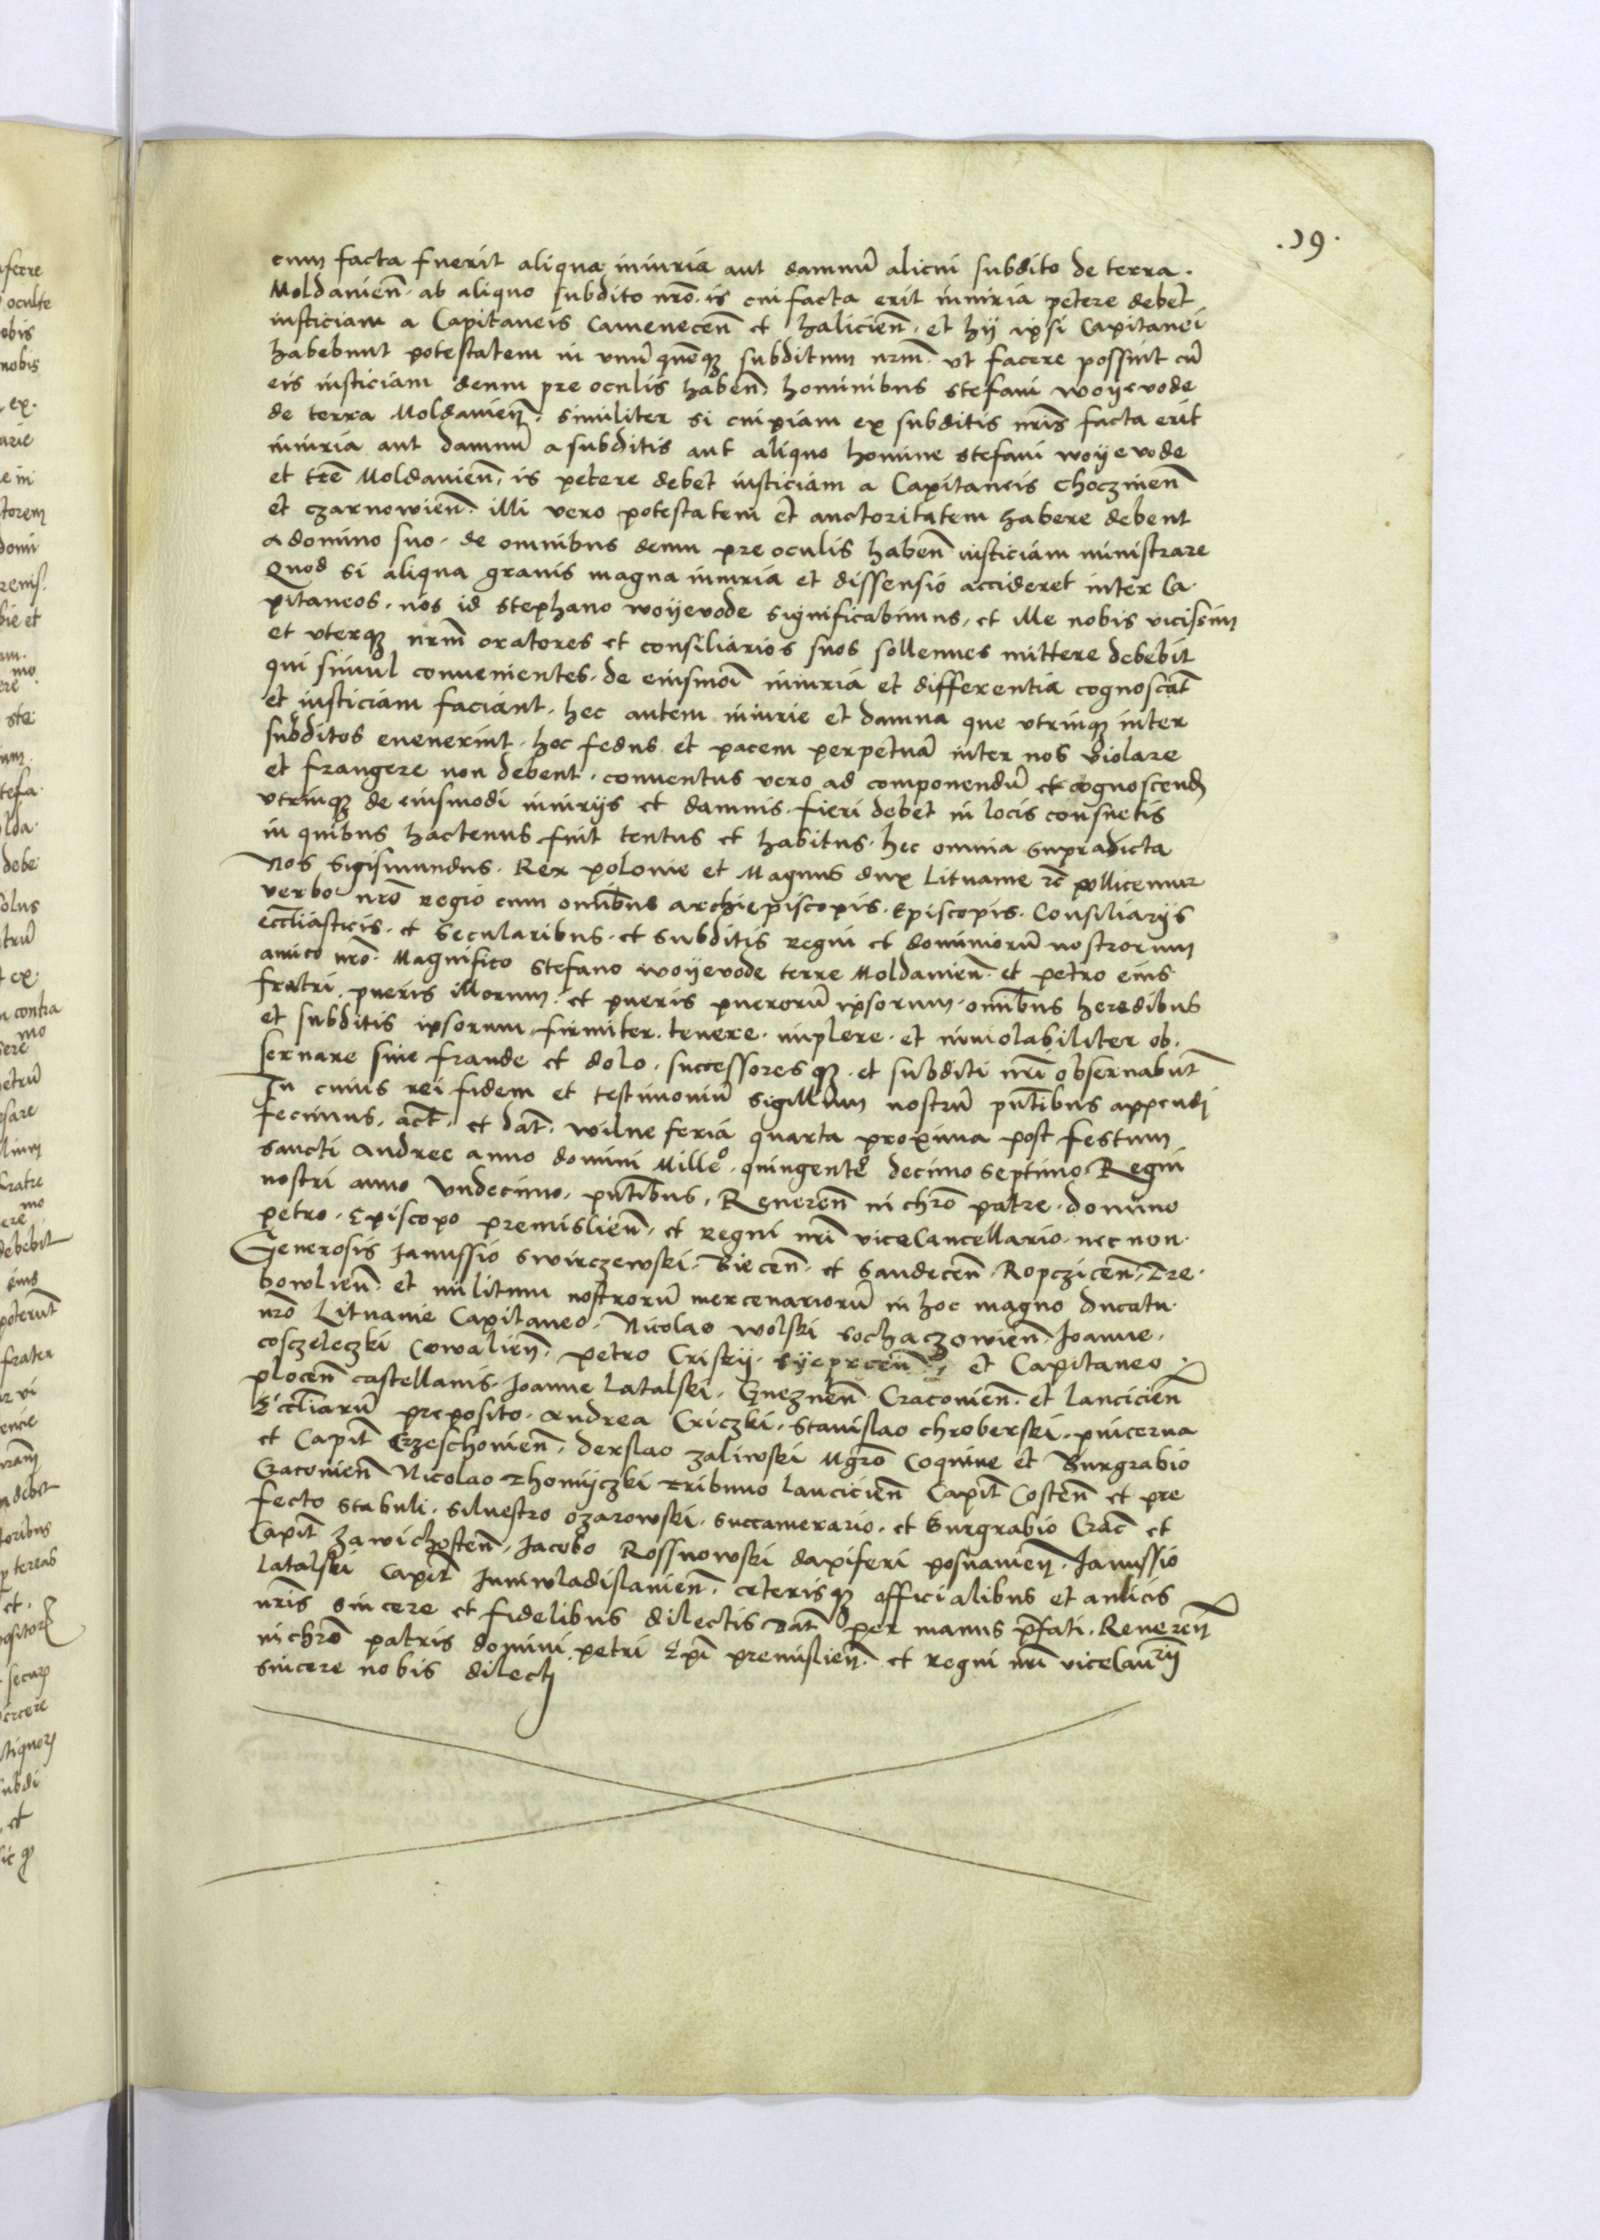 .19.
cum facta fuerit aliqua iniuria aut damnū alicui subdito de terra.
Moldavieñ. ab aliquo subdito nr̄o. is cui facta erit iniuria petere debet
iusticiam a Capitaneis Camenecen̄ et halicien̄. et hij ipsi Capitanei
habebunt potestatem in vnūquēq₃ subditum nr̄m. vt facere possint cū
eis iusticiam deum pre oculis haben̄. hominibus stefani woyevode
de terra Moldavien̄. similiter si cuipiam ex subditis nr̄is facta erit
iniuria aut damnū a subditis aut aliquo homine stefani woyevode
et trē Moldavien̄. is petere debet iusticiam a Capitaneis Choczimen̄
et czarnowien̄. illi vero potestatem et auctoritatem habere debent
a domino suo. de omnibus deum pre oculis haben̄ iusticiam ministrare
Quod si aliqua gravis magna iniuria et dissensio accideret inter Ca-
pitaneos. nos id stephano woyevode significabimus, et ille nobis vicissim
et vterq₃ nr̄m oratores et consiliarios suos sollennes mittere debebit
qui simul convenientes. de eiusmōi iniuria et differentia cognoscāt
et iusticiam faciant. hec autem iniurie et damna que vtrinq₃ inter
subditos evenerint. hoc fedus et pacem perpetuā inter nos violare
et frangere non debent. conventus vero ad componendū et cognoscend
vtrinq₃ de eiusmodi iniurijs et damnis fieri debet in locis consuetis
in quibus hactenus fuit tentus et habitus. hec omnia supradicta
Nos Sigismundus. Rex polonie et Magnus dux Lituanie r̄c pollicemur
verbo nr̄o regio cum om̄ibus archiepiscopis. Episcopis. Consiliarijs
eccl̄iasticis. et secularibus. et subditis regni et dominiorū nostrorum
amico nr̄o. Magnifico stefano woyevode terre Moldavien̄. et petro eius
fratri. pueris illorum. et pueris puerorū ipsorum. om̄ibus heredibus
et subditis ipsorum firmiter. tenere. implere. et inviolabiliter ob-
servare sine fraude et dolo. successoresq₃. et subditi nr̄i observabūt
In cuius rei fidem et testimoniū sigillum nostrū pn̄tibus appendi
fecimus. act̄. et dat̄. wilne feria quarta proxima post festum
sancti andree anno domini Milleº. quingentº decimo septimo Regni
nostri anno vndecimo. pn̄tibus. Reveren̄ in chr̄o patre. domino
petro. Episcopo premislien̄. et regni nr̄i viceCancellario. nec non.
Generosis Ianussio Swirczewski. Biecen̄. et Sandecen̄. Ropczicen̄. Tre-
bowlien̄. et militum nostrorū mercenariorū in hoc magno ducatu
nr̄o Lituanie Capitaneo. Nicolao wolski sochaczowien̄. Ioanne.
coszczeleczki Cowalien̄. petro Criskij. syeprcen̄. et Capitaneo
plocen̄ castellanis. Ioanne latalski. Gneznen̄. Cracovien̄. et lancicien̄
Eccl̄iarū preposito. Andrea Criczki. Stanislao chroberski. pincerna
et Capit̄ Czeschovien̄. derslao zaliwski Mgr̄o Coquine et Burgrabio
Cracovien̄ Nicolao Thomijczki Tribuno lancicien̄ Capit̄ Costen̄ et pre
fecto stabuli. silvestro ozarowski. succamerario. et Burgrabio Crac̄ et
Capit̄ zawichosten̄. Iacobo Rossnowski dapiferi posnanien̄. Ianussio
latalski Capit̄ Iuniwladislavien̄. ceterisq₃ officialibus et aulicis
nr̄is sincere et fidelibus dilectis Dat̄ per manus p̄fati. Reveren̄
in chr̄o patris domini petri Ep̄i premislien̄. et regni nr̄i viceCanrij
sincere nobis dilecti